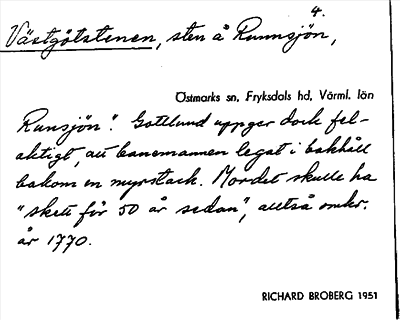 4.
Västgötstenen, sten å Runnsjön,
Östmarks sn, Fryksdals hd, Värml. län
Runsjön". Gottlund uppger dock fel-
aktigt, att banemannen legat i bakhåll
bakom en myrstack. Mordet skulle ha
"skett för 50 år sedan", alltså omkr.
år 1770.
RICHARD BROBERG 1951